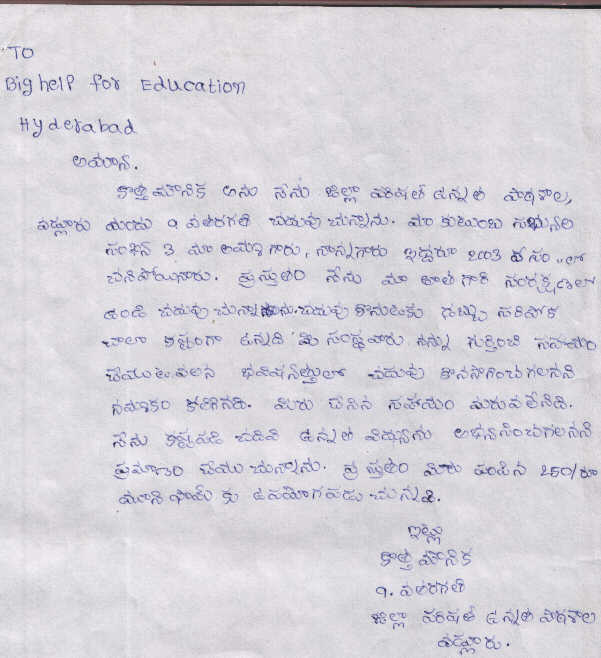 TO
Bighelp for Education
Hyderabad
అయ్యా.
కొత్త మౌనిక అను నేను జిల్లా పరిషత్ ఉన్నత పాఠశాల,
నందు 9 వతరగతి చదువు చున్నాను. మా కుటుంబ సభ్యుల
సంఖ్య 3 మా అమ్మగారు, నాన్నగారు ఇద్దరూ 2003 వ సం,,లో
చనిపోయినారు. ప్రస్తుతం నేను మా తాత గారి సంరక్షణలో
ఉండి చదువు చున్నాను. చదువు కొనుటకు డబ్బు సరిపోక
చాలా కష్టంగా ఉన్నది మీ సంస్థ వారు నన్ను గుర్తించి సహాయం
చేయుట వలన భవిష్యత్తులో చదువు కొనసాగించగలనని
నమ్మకం కలిగినది. మీరు చేసిన సహాయం మరువలేనిది.
నేను కష్టపడి చదివి ఉన్నత విద్యను అభ్యసించగలనని
ప్రమాణం చేయు చున్నాను. ప్రస్తుతం మీరు పంపిన 250/రూ
కు ఉపయోగపడు చున్నవి.
ఇట్లు
కొత్త మౌనిక
9. వతరగతి
జిల్లా పరిషత్ ఉన్నత పాఠశాల